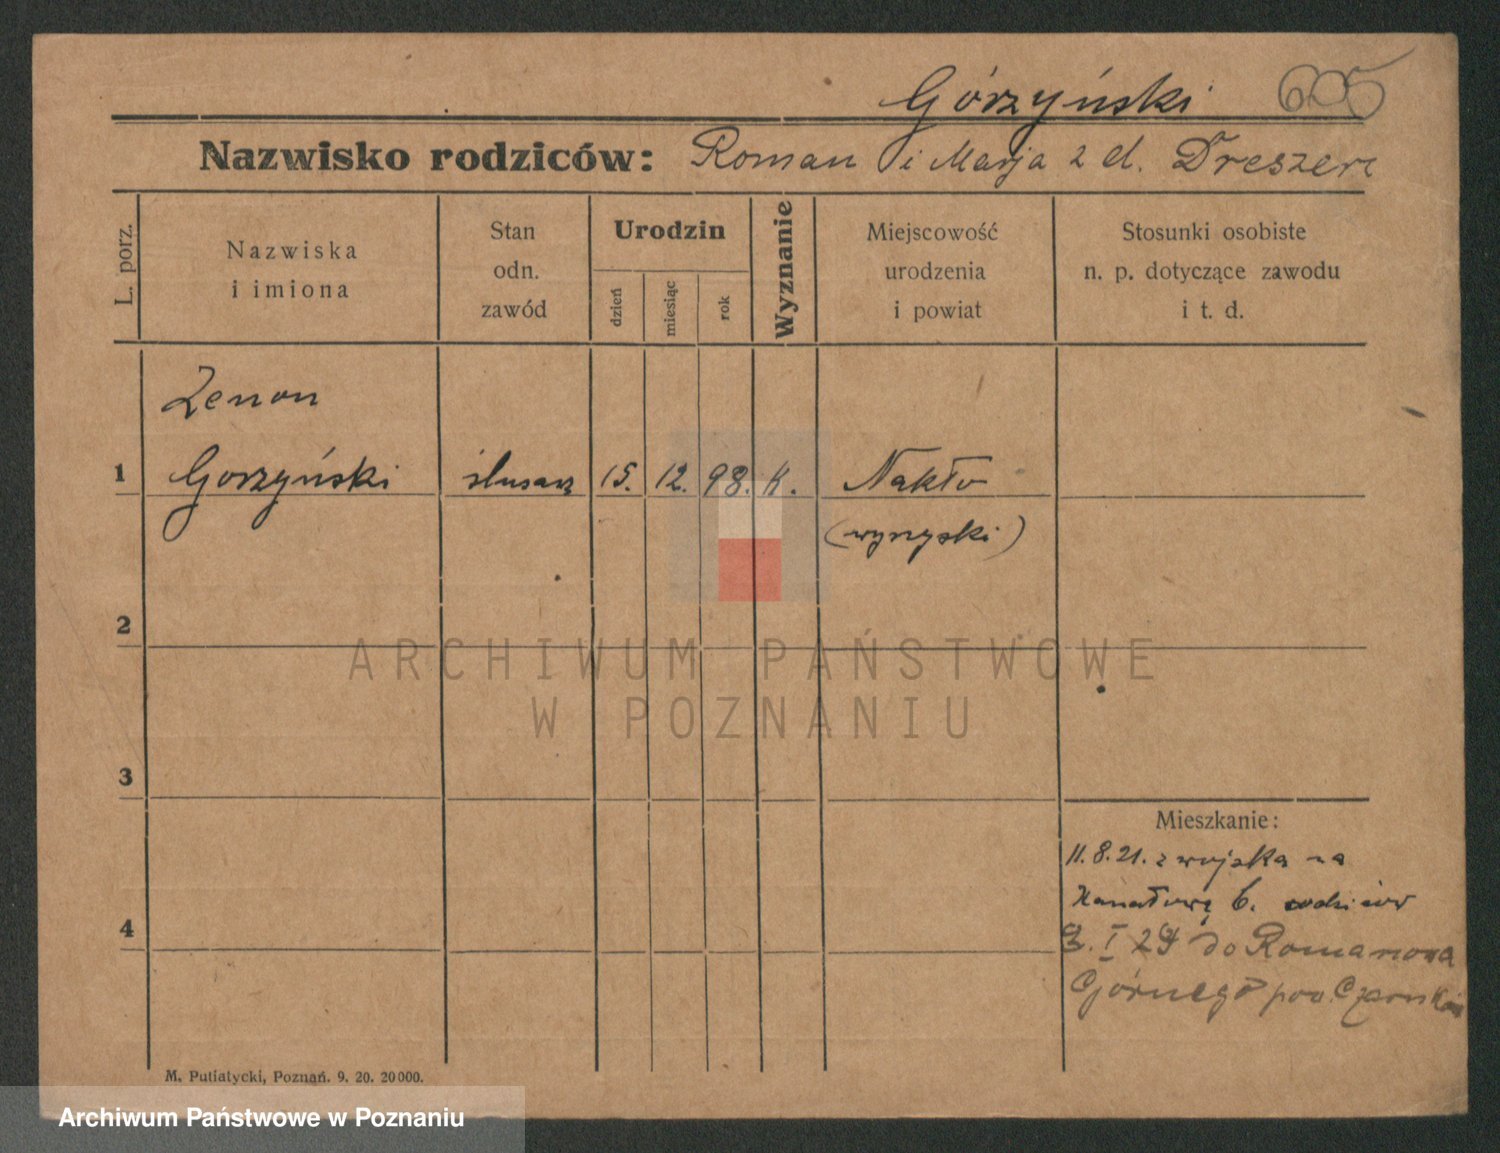 Górzyński 605
Nazwisko rodziców: Roman i Marja z d. Dreszer
L. porz.
Nazwiska
i imiona
Stan
odn.
zawód
Urodzin
dzień
miesiąc
rok
Wyznanie
Miejscowość
urodzenia
i powiat
Stosunki osobiste
n. p. dotyczące zawodu
i t. d.
Zenon
1 Gorzyński ślusarz 15. 12. 98. K. Nakło
(wyrzyski)
2
ARCHIWUM PAŃSTWOWE
W POZNANIU
3
Mieszkanie:
11.8.21. z wojska na
Kanałową 6. rodziców
4
I 29 do Romanowa
Górnego pow. Czarnków
M. Putiatycki, Poznań. 9. 20. 20000.
Archiwum Państwowe w Poznaniu